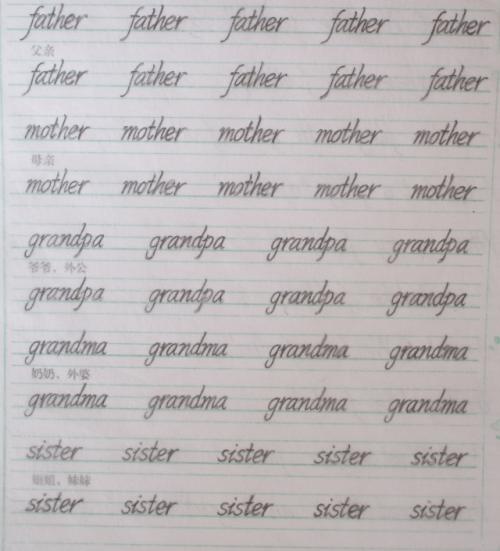 father father father father father
父亲
father father father father father
mother mother mother mother mother
母亲
mother mother mother mother mother
grandpa grandpa grandpa grandpa
爷爷，外公
grandpa grandpa grandpa grandpa
grandma grandma grandma grandma
奶奶，外婆
grandma grandma grandma grandma
sister sister sister sister sister
姐姐，妹妹
sister sister sister sister sister